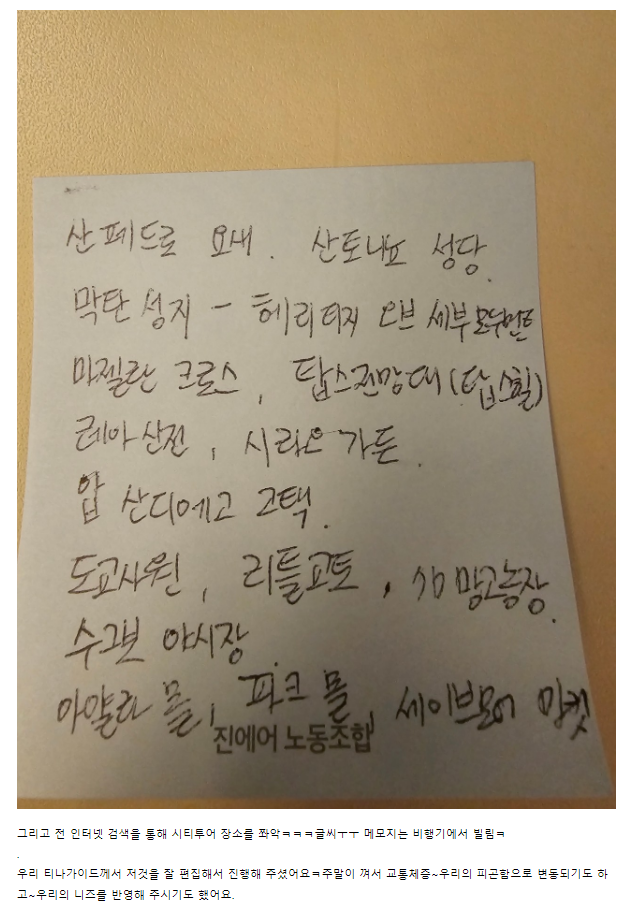 산페드로 요새. 산토니뇨 성당.
막탄성지 - 헤리티지 오브 세부 모뉴먼트
마젤란 크로스, 탑스전망대(탑스힐)
레아산전, 시라오 가든.
얍 산디에고 고택.
도교사원, 리틀교토, 망고농장.
수그보 야시장
아얄라 몰, 파크 몰, 세이브모어 마켓
진에어 노동조합
그리고 전 인터넷 검색을 통해 시티투어 장소를 쫘악ㅋㅋㅋ글씨ㅜㅜ 메모지는 비행기에서 빌림ㅋ
.
우리 티나가이드께서 저것을 잘 편집해서 진행해 주셨어요ㅋ주말이 껴서 교통체증~우리의 피곤함으로 변동되기도 하
고~우리의 니즈를 반영해 주시기도 했어요.